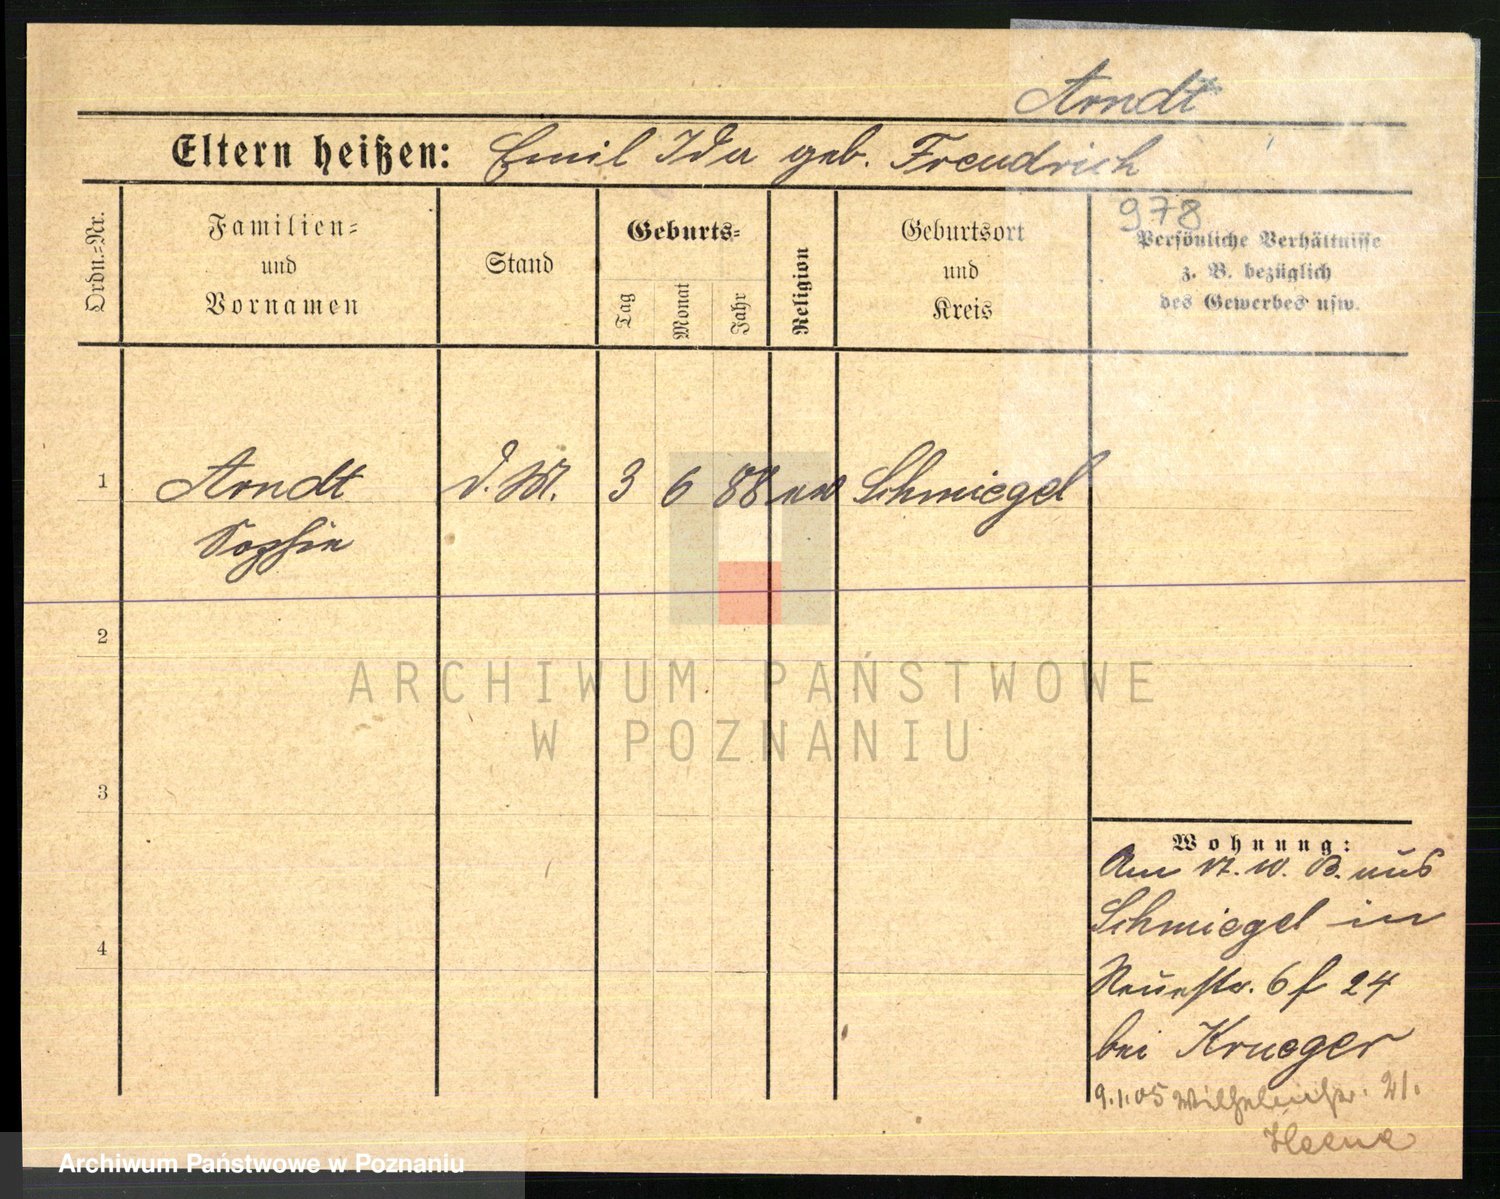 Arndt
Eltern heißen: Emil Ida geb. Freudrich
978
Ordn.=Nr.
Familien=
und
Vornamen
Stand
Geburts=
Tag
Monat
Jahr
Religion
Geburtsort
und
Kreis
Persönliche Verhältnisse
z. B. bezüglich
des Gewerbes usw.
1 Arndt d. M. 3 6 88 Schmiegel
Sophie
2
3
4
ARCHIWUM PAŃSTWOWE
W POZNANIU
Wohnung:
Am 10. aus
Schmiegel in
Neuestr. 6 f 24
bei Krueger
9.1.05 Wilhelmstr. 21.
Archiwum Państwowe w Poznaniu